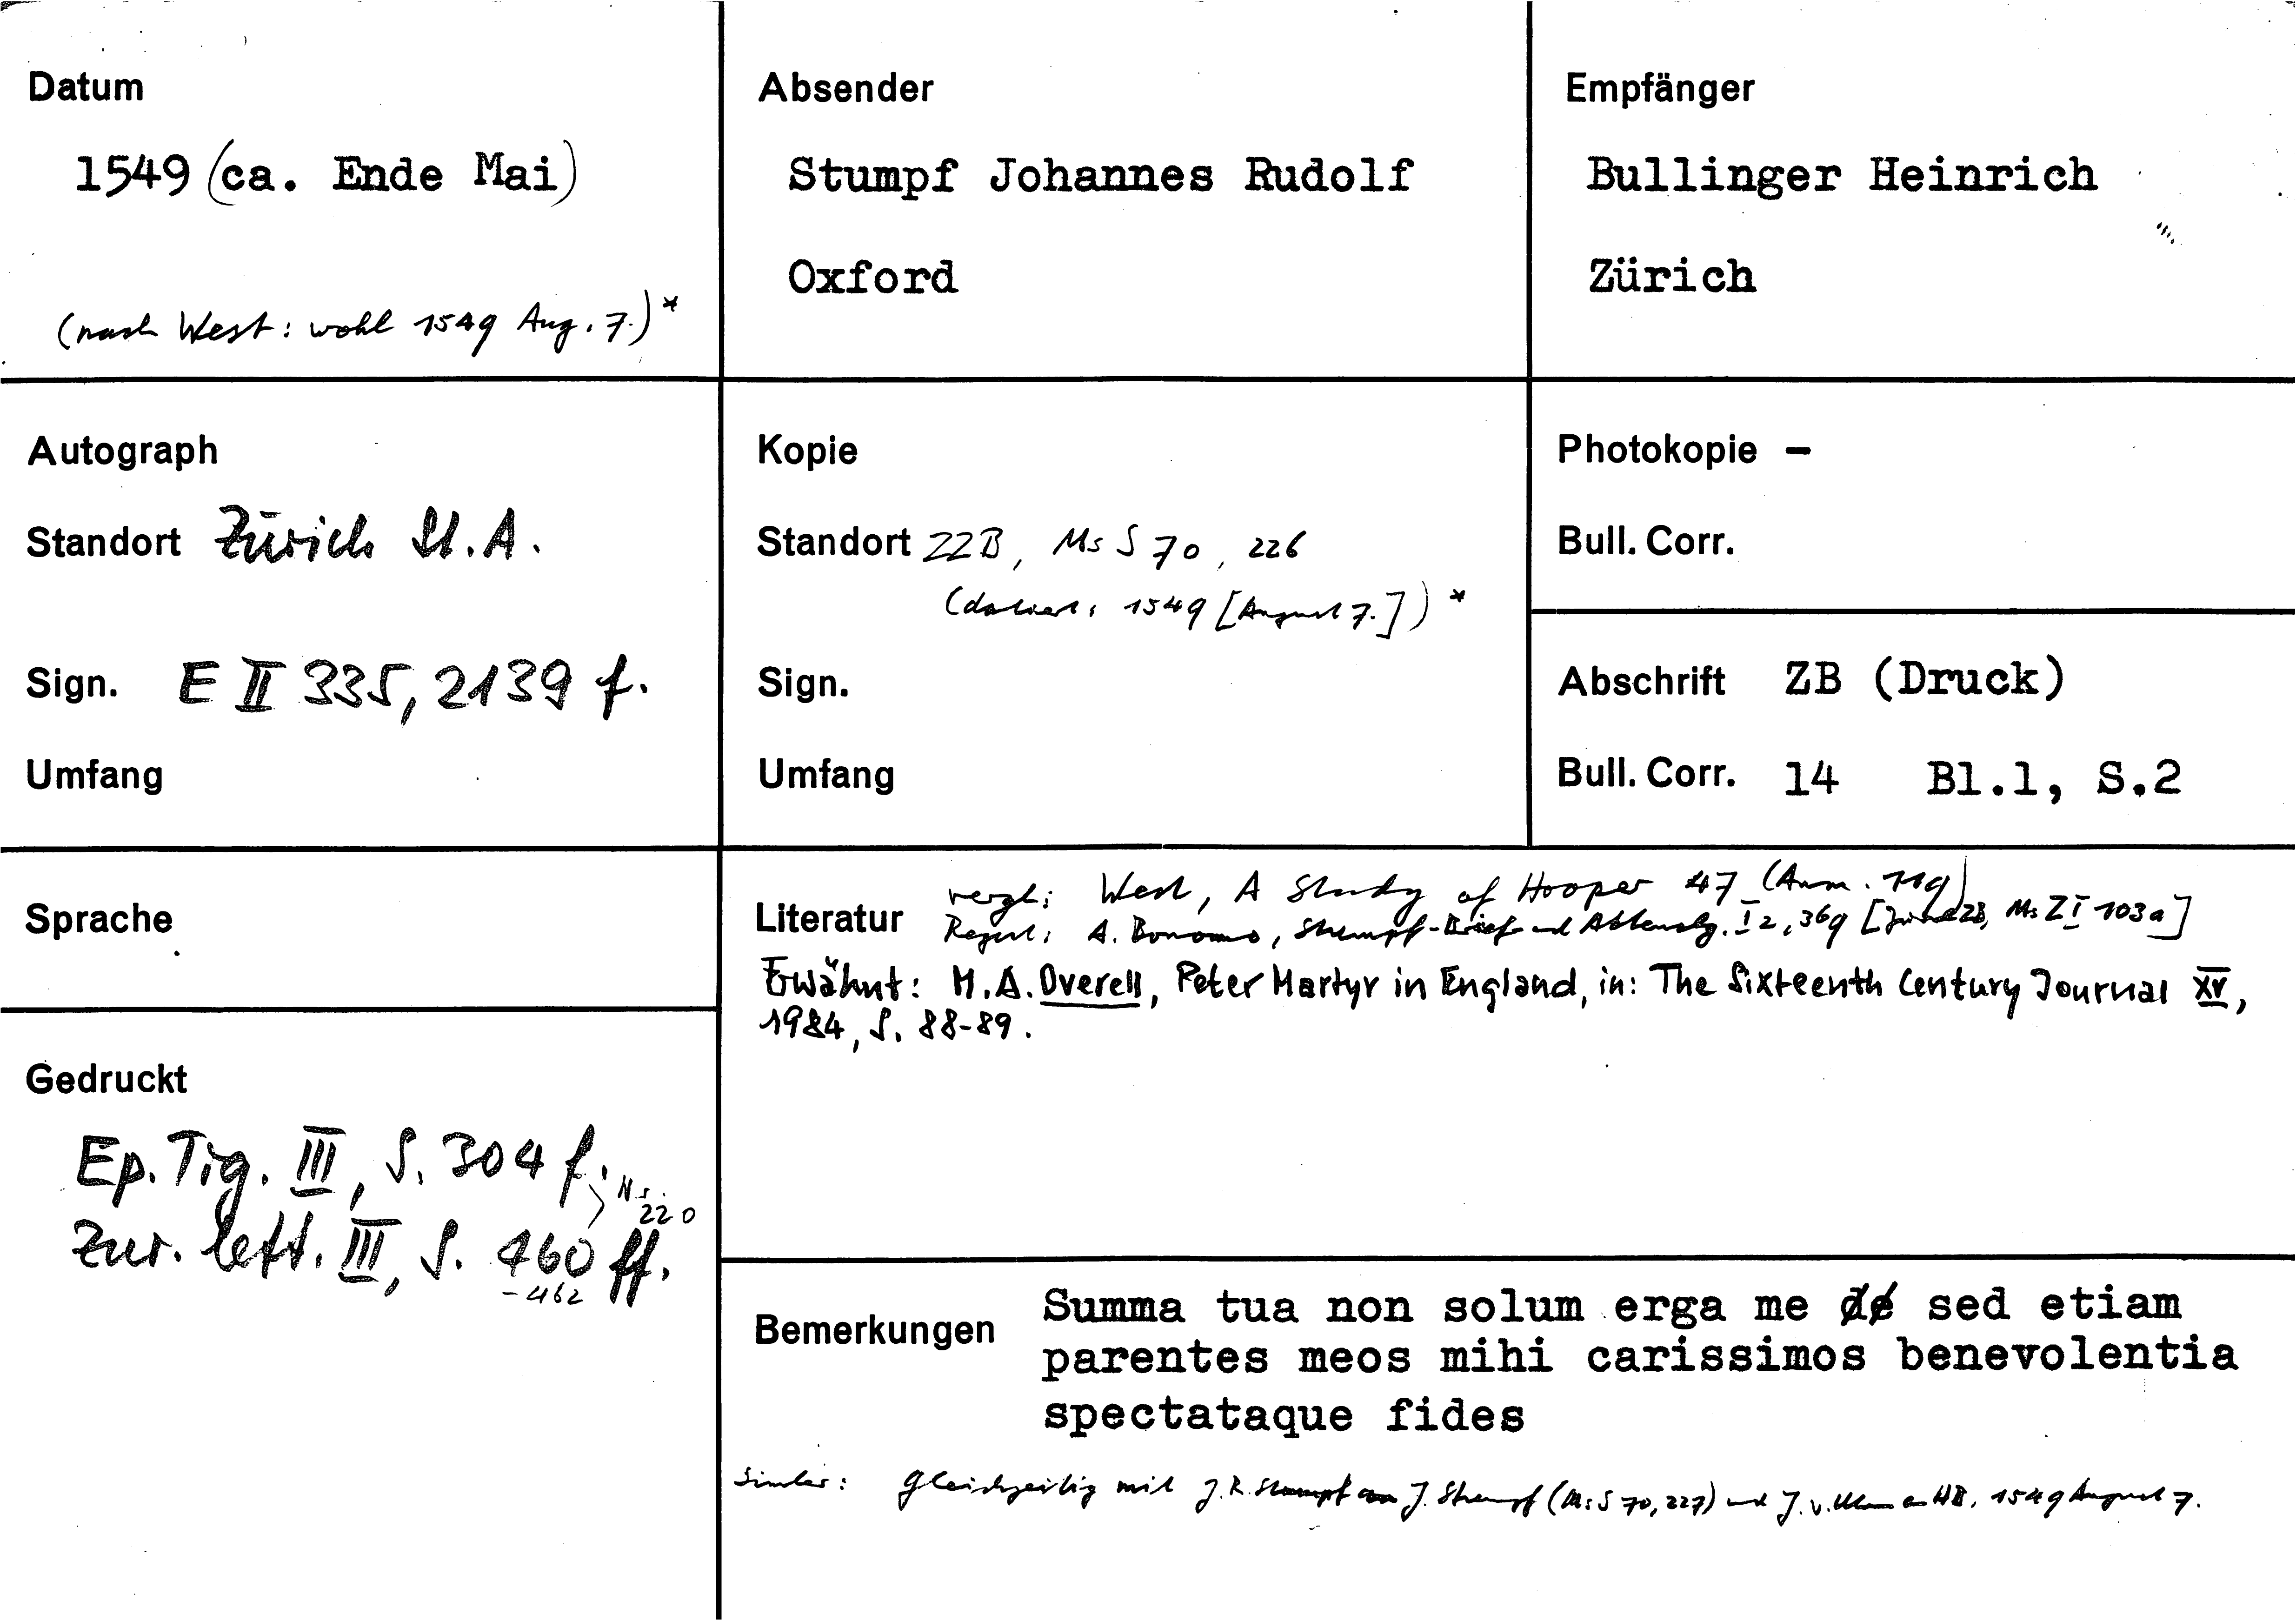 Datum
1549 (ca. Ende Mai)
(nach West: wohl 1549 Aug. 7.)*
Absender
Stumpf Johannes Rudolf
Oxford
Empfänger
Bullinger Heinrich
Zürich
Autograph
Standort Zürich St.A.
Sign. E II 335, 2139 f.
Umfang
Kopie
Standort ZZB, Ms S 70, 226
(datiert: 1549 [August 7.]) *
Sign.
Umfang
Photokopie -
Bull. Corr.
Abschrift ZB (Druck)
Bull. Corr. 14 Bl.1, S.2
Sprache
Gedruckt
Ep. Tig. III, S. 304 f.;
Nr. 220
Zur. lett. III, S. 460 ff.
-462
Literatur vergl: West, A Study of Hooper 47 (Anm. 119)
Regest: A. Bonomo, Stumpf-Brief- und Aktenslg. I 2, 369 [Ms Z I 103a]
Erwähnt: M.A. Overell, Peter Martyr in England, in: The Sixteenth Century Journal XV,
1984, S. 88-89.
Bemerkungen Summa tua non solum erga me de sed etiam
parentes meos mihi carissimos benevolentia
spectataque fides
Simler: gleichzeitig mit J.R. Stumpf an J. Stumpf (Ms S 70, 227) und J. v. Ulm an HB, 1549 August 7.